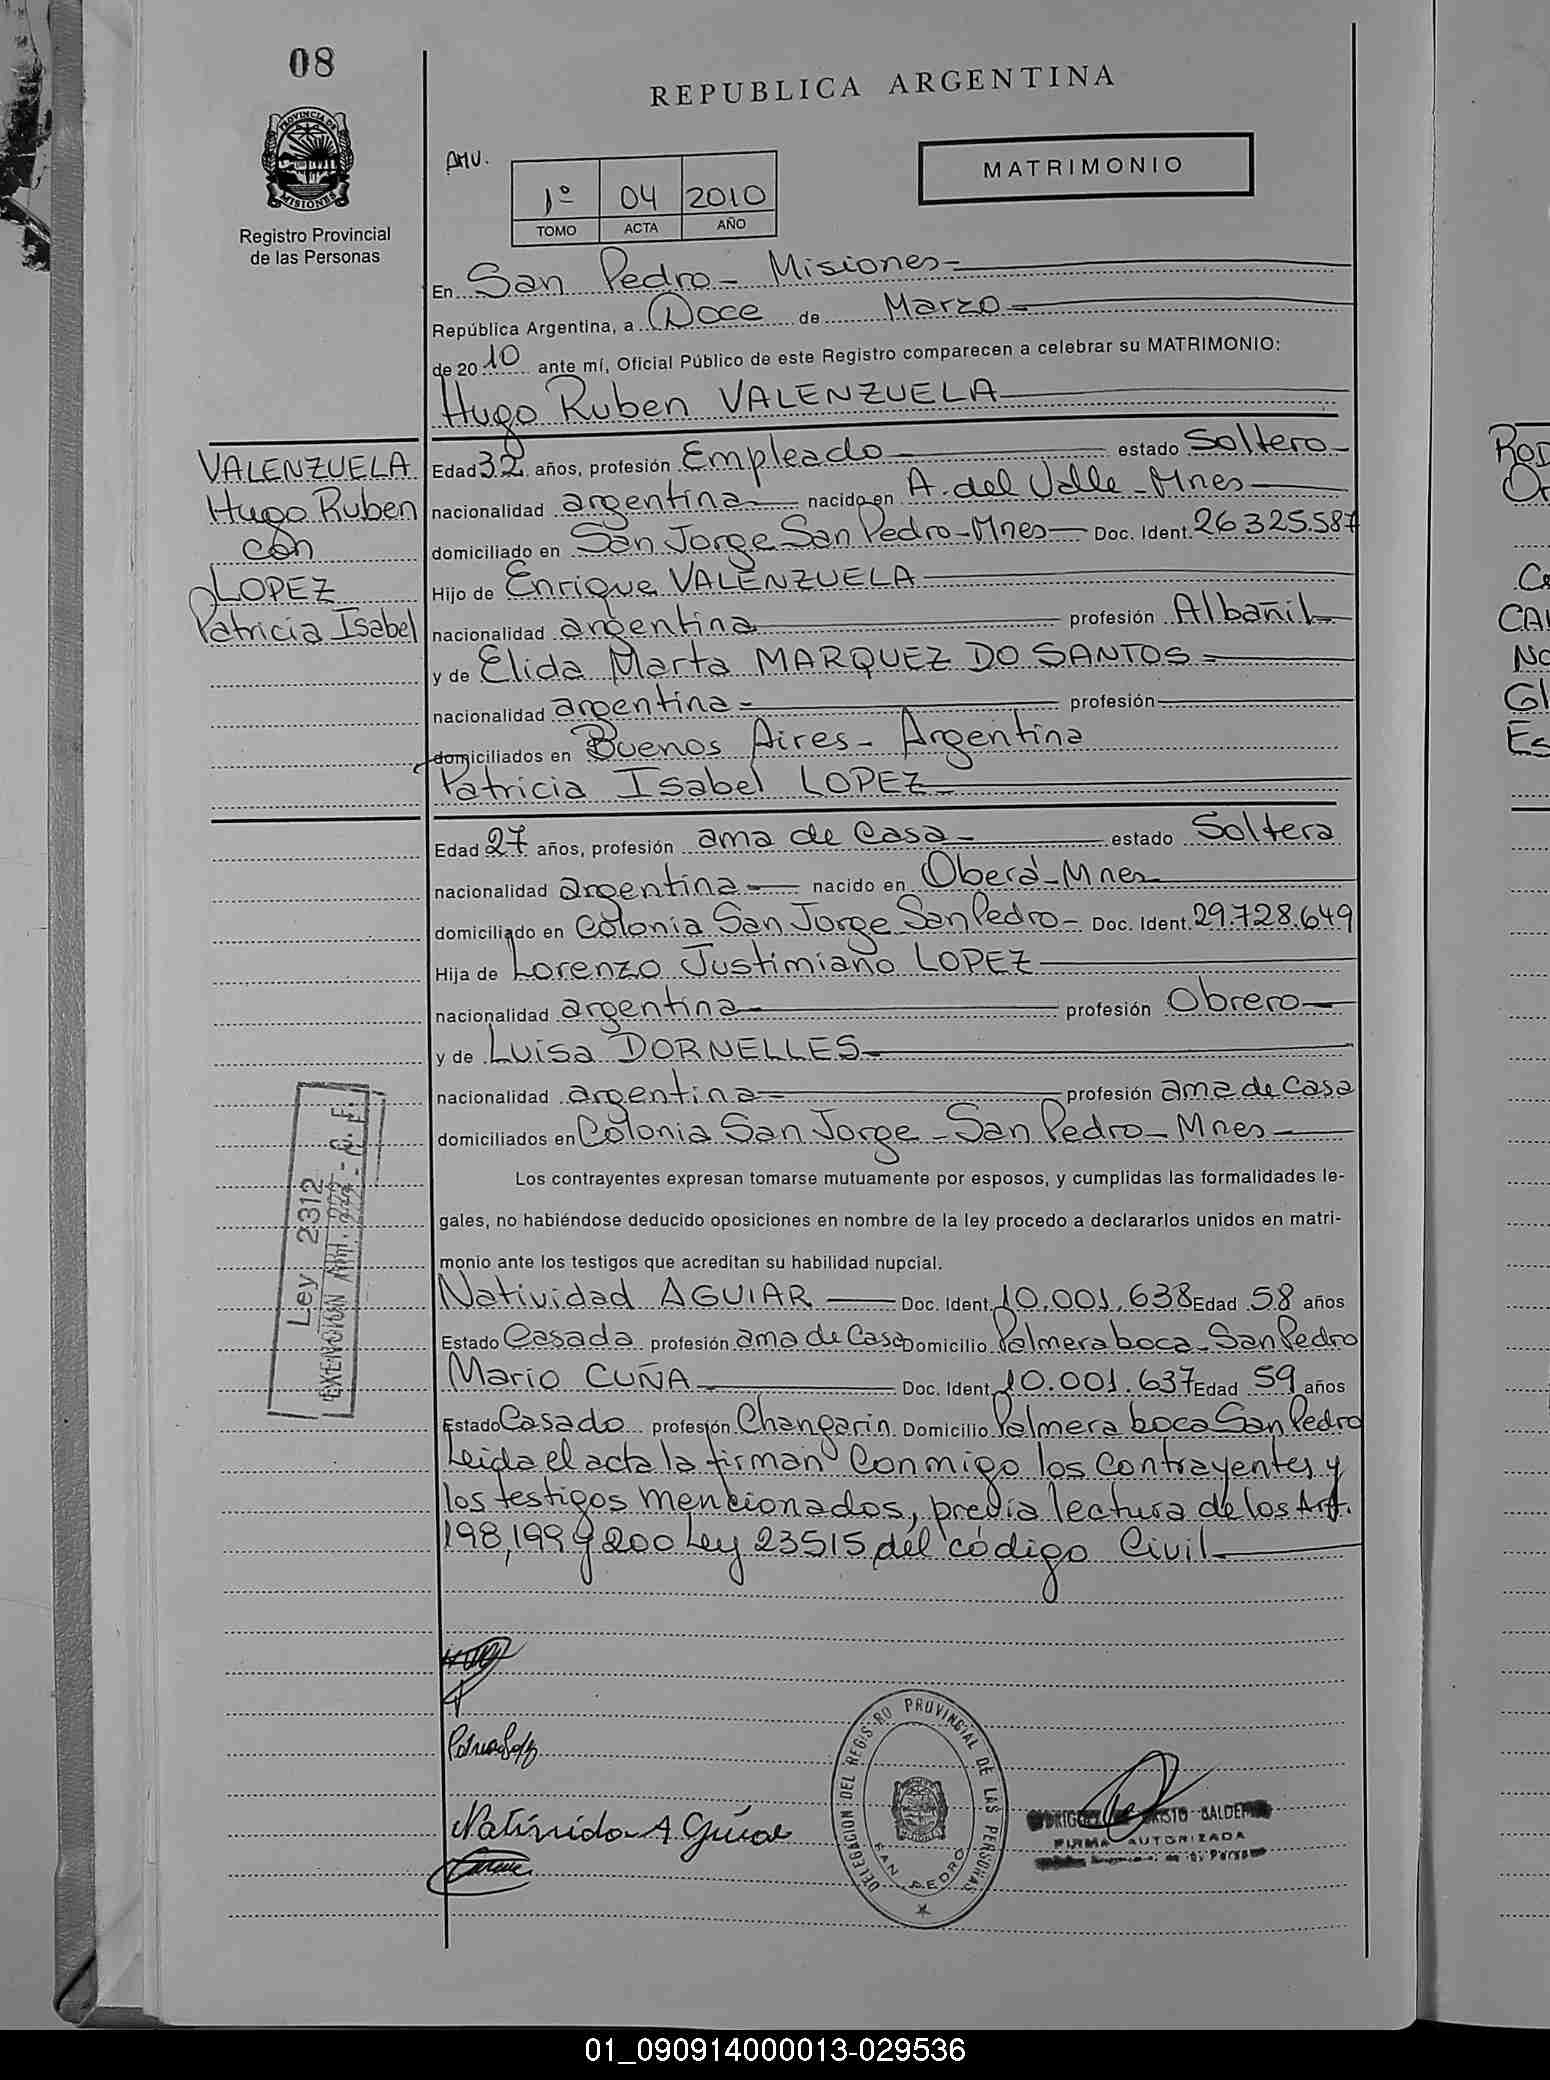 08
REPUBLICA ARGENTINA
PROVINCIA DE
MISIONES
Registro Provincial
de las Personas
AMU.
1º 04 2010
TOMO ACTA AÑO
MATRIMONIO
En San Pedro - Misiones
República Argentina, a Doce de Marzo
de 2010 ante mí, Oficial Público de este Registro comparecen a celebrar su MATRIMONIO:
Hugo Ruben VALENZUELA
VALENZUELA
Hugo Ruben
con
LOPEZ
Patricia Isabel
Edad 32 años, profesión Empleado estado Soltero
nacionalidad argentina nacido en A. del Valle - Mnes
domiciliado en San Jorge San Pedro - Mnes Doc. Ident. 26325.587
Hijo de Enrique VALENZUELA
nacionalidad argentina profesión Albañil
y de Elida Marta MARQUEZ DO SANTOS
nacionalidad argentina profesión
domiciliados en Buenos Aires - Argentina
Patricia Isabel LOPEZ
Edad 27 años, profesión ama de Casa estado Soltera
nacionalidad argentina nacido en Oberá - Mnes
domiciliado en Colonia San Jorge San Pedro - Doc. Ident. 29.728.649
Hija de Lorenzo Justimiano LOPEZ
nacionalidad argentina profesión Obrero
y de Luisa DORNELLES
nacionalidad argentina profesión ama de Casa
domiciliados en Colonia San Jorge - San Pedro - Mnes
Los contrayentes expresan tomarse mutuamente por esposos, y cumplidas las formalidades le-
gales, no habiéndose deducido oposiciones en nombre de la ley procedo a declararlos unidos en matri-
monio ante los testigos que acreditan su habilidad nupcial.
Natividad AGUIAR Doc. Ident. 10.001.638 Edad 58 años
Estado Casada profesión ama de Casa Domicilio Palmera boca - San Pedro
Mario CUÑA Doc. Ident. 10.001.637 Edad 59 años
Estado Casado profesión Changarin Domicilio Palmera boca San Pedro
Leida el acta la firman Conmigo los Contrayentes y
los testigos mencionados, previa lectura de los Art.
198, 199 y 200 Ley 23515 del código Civil
Ley 2312
EXENCION
Natividad Aguiar
DELEGACION DEL REGISTRO PROVINCIAL DE LAS PERSONAS
SAN PEDRO
FIRMA AUTORIZADA
01_090914000013-029536